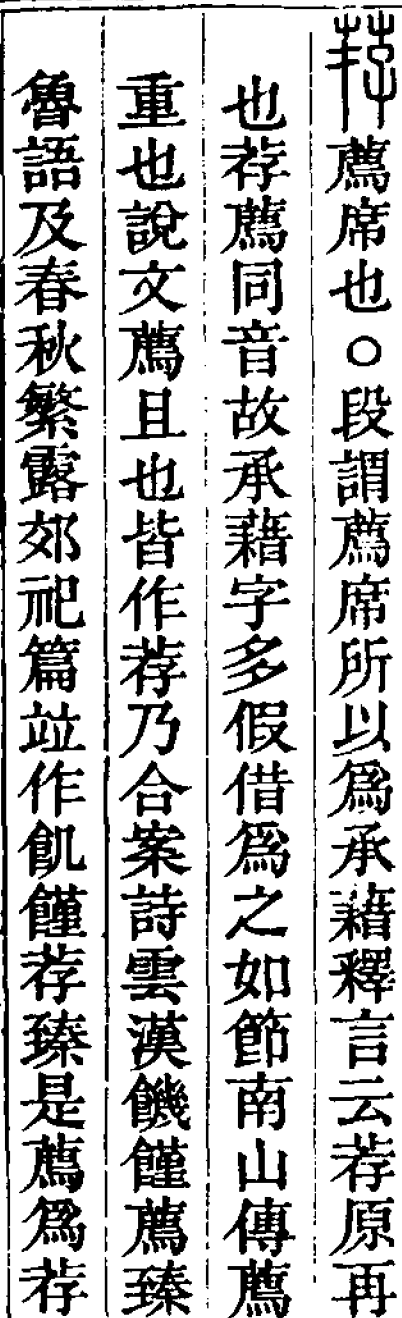 荐薦席也○段謂薦席所以爲承藉釋言云荐原再
也荐薦同音故承藉字多假借爲之如節南山傳薦
重也說文薦且也皆作荐乃合案詩雲漢饑饉薦臻
魯語及春秋繁露郊祀篇竝作飢饉荐臻是薦爲荐